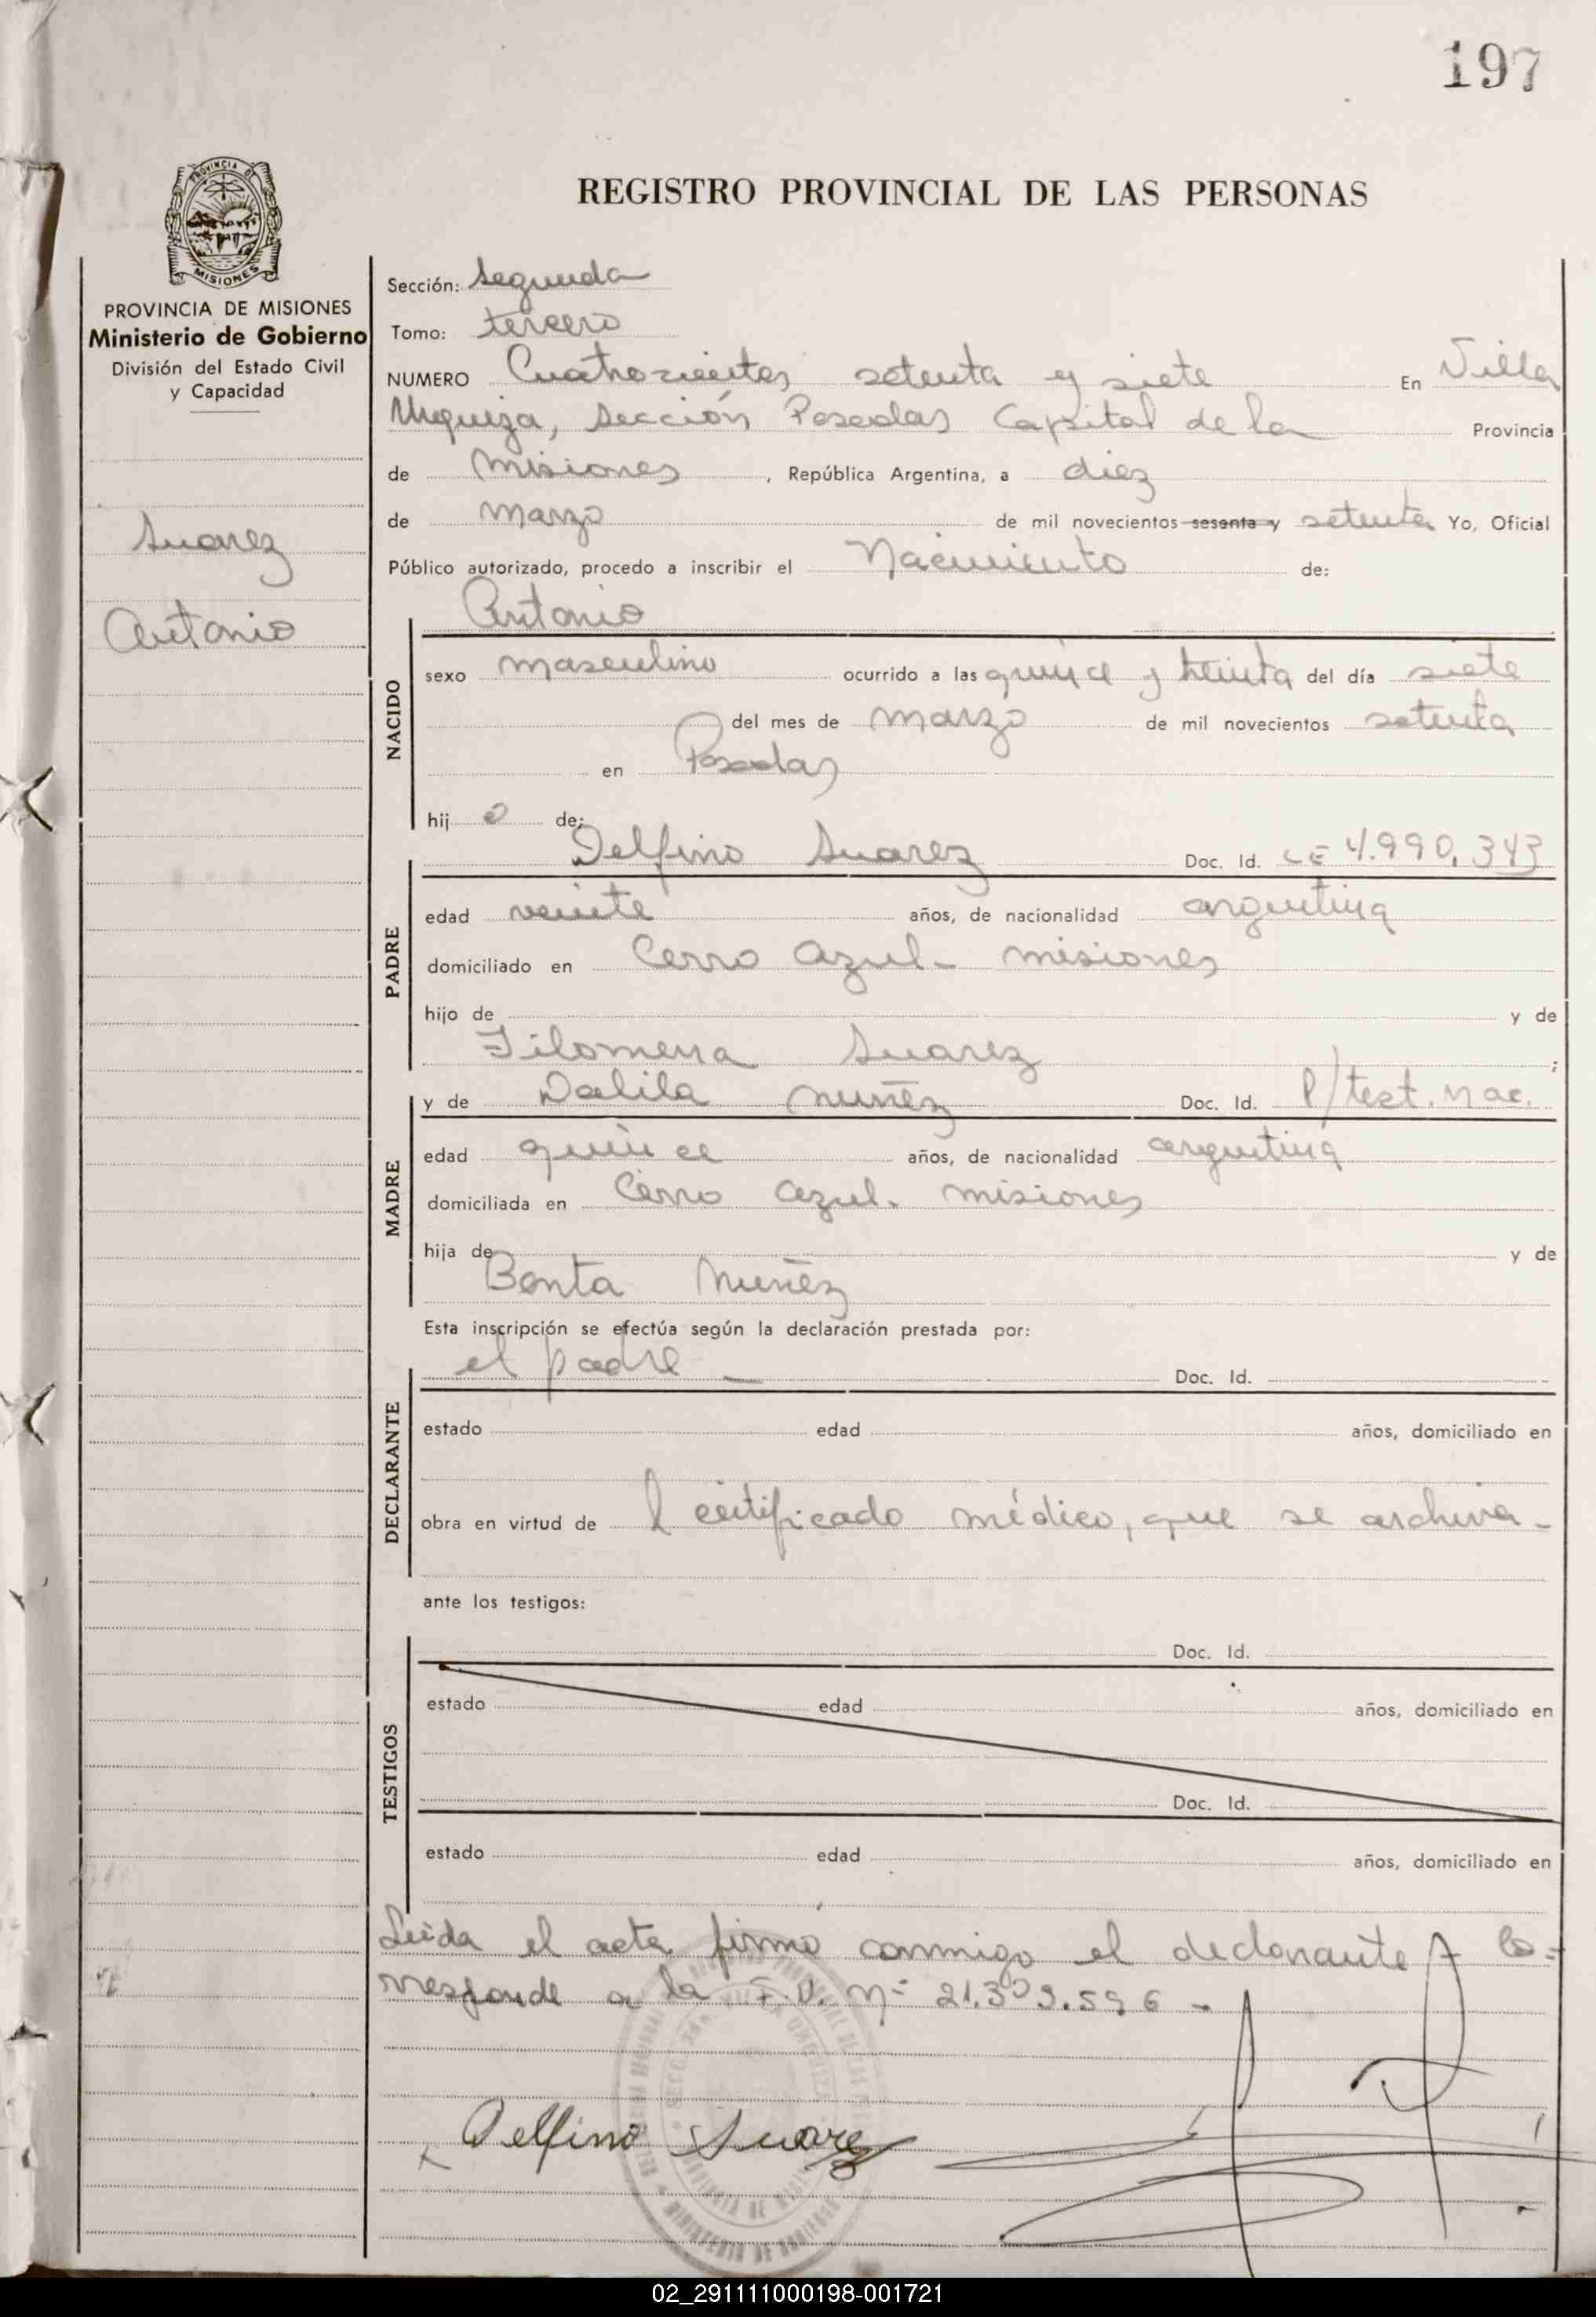 197
PROVINCIA DE
MISIONES
PROVINCIA DE MISIONES
Ministerio de Gobierno
División del Estado Civil
y Capacidad
Suarez
Antonio
REGISTRO PROVINCIAL DE LAS PERSONAS
Sección: Segunda
Tomo: tercero
NUMERO Cuatrocientos setenta y siete En Villa
Urquiza, Sección Posadas Capital de la Provincia
de Misiones, República Argentina, a diez
de marzo de mil novecientos sesenta y setenta Yo, Oficial
Público autorizado, procedo a inscribir el Nacimiento de:
Antonio
NACIDO
sexo masculino ocurrido a las quince y treinta del día siete
del mes de marzo de mil novecientos setenta
en Posadas
hij o de:
Delfino Suarez Doc. Id. LE 4.990.343
PADRE
edad veinte años, de nacionalidad argentina
domiciliado en Cerro Azul - misiones
hijo de y de
Filomena Suarez ;
y de Dalila Nuñez Doc. Id. P/test. nac.
MADRE
edad quince años, de nacionalidad argentina
domiciliada en Cerro Azul. misiones
hija de y de
Benta Nuñez
Esta inscripción se efectúa según la declaración prestada por:
el padre — Doc. Id.
DECLARANTE
estado edad años, domiciliado en
obra en virtud de l certificado médico, que se archiva -
ante los testigos:
Doc. Id.
TESTIGOS
estado edad años, domiciliado en
Doc. Id.
estado edad años, domiciliado en
Leída el acta firmó conmigo el declarante Co=
rresponde a la F.U. Nº 21.309.596 -
Delfino Suarez
02_291111000198-001721